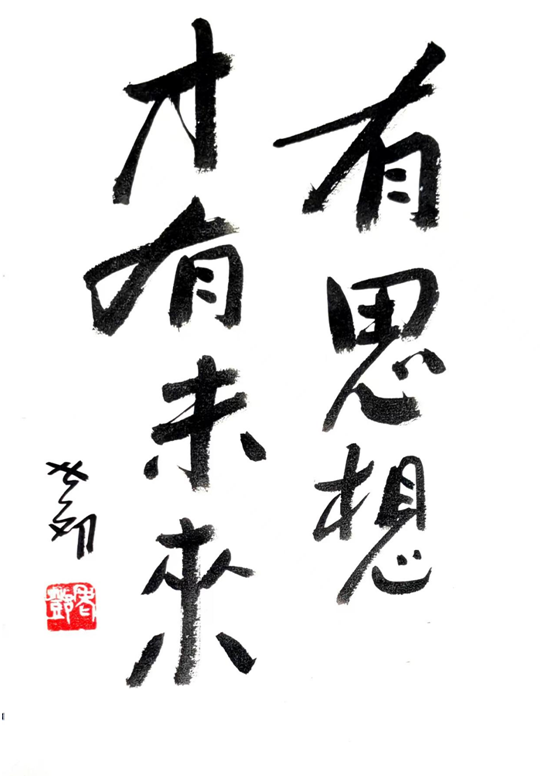 有思想
才有未來